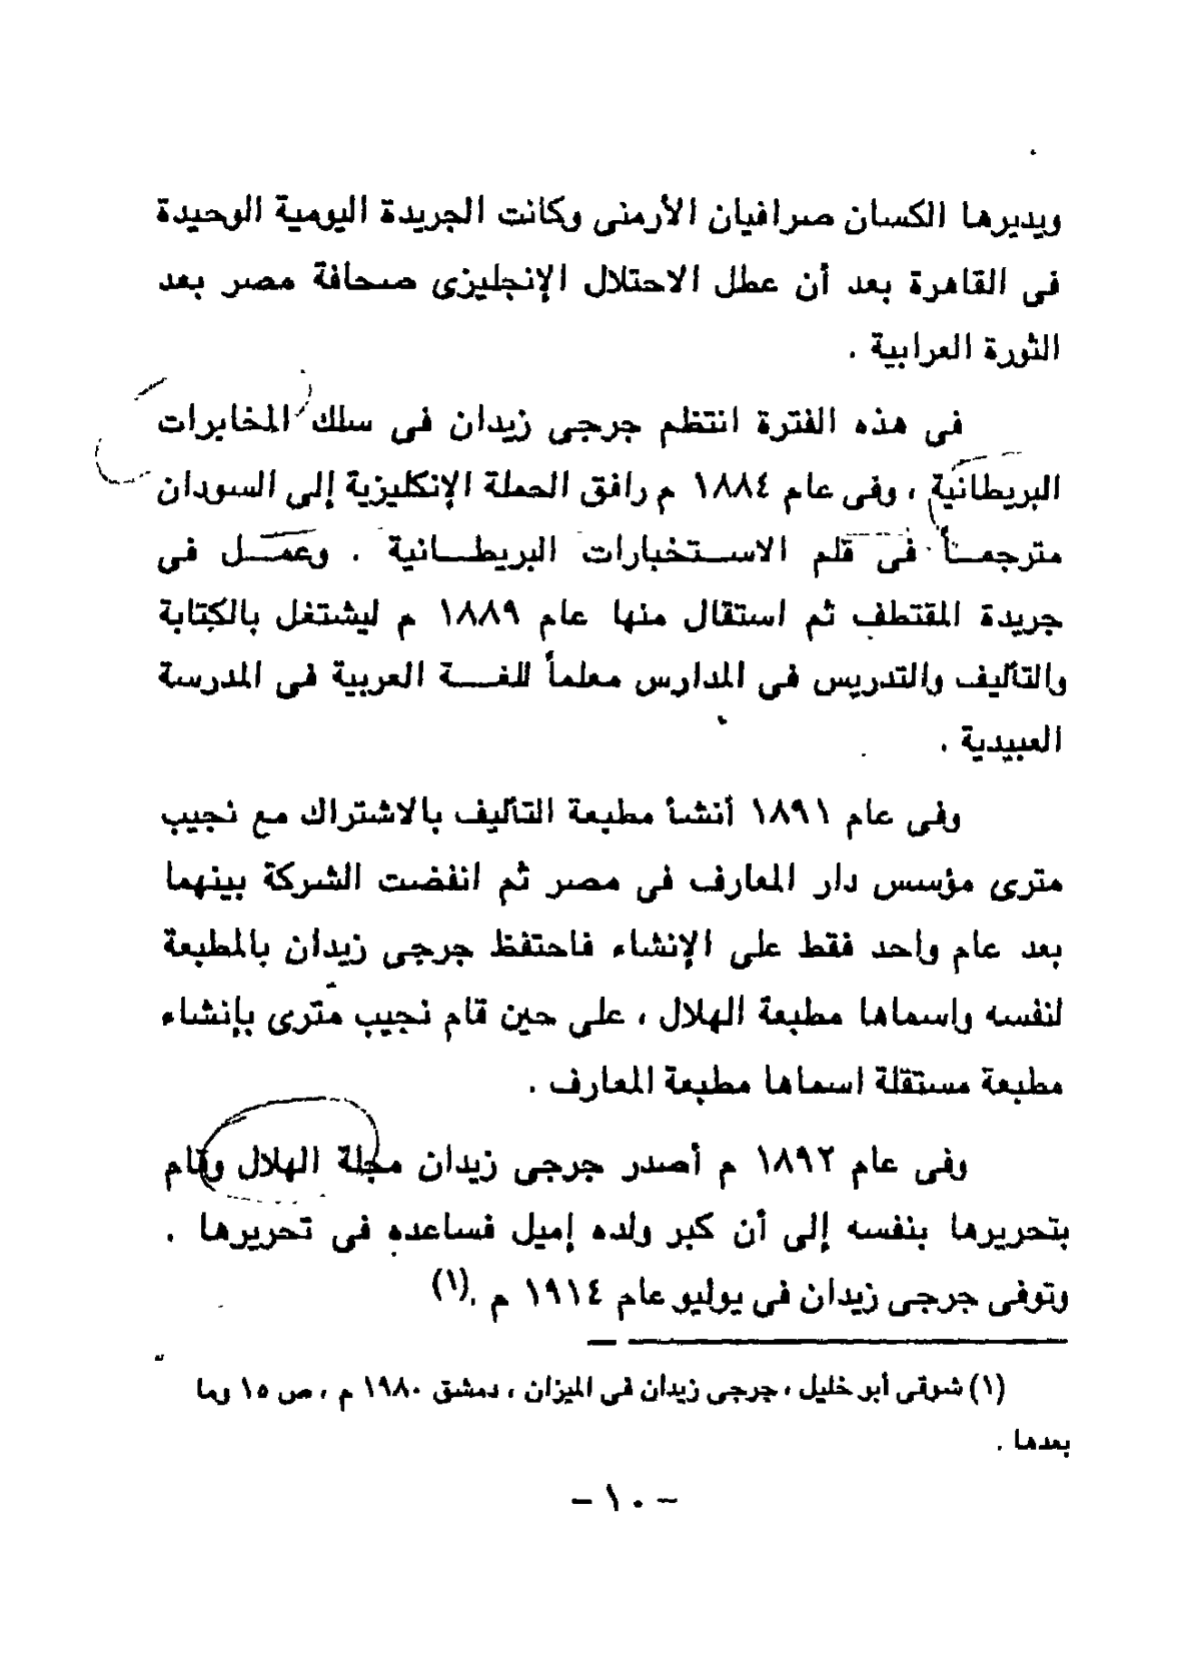 ويديرها الكسان صرافيان الأرمنى وكانت الجريدة اليومية الوحيدة
فى القاهرة بعد أن عطل الاحتلال الإنجليزى صحافة مصر بعد
الثورة العرابية .
فى هذه الفترة انتظم جرجى زيدان فى سلك المخابرات
البريطانية ، وفى عام ١٨٨٤ م رافق الحملة الإنكليزية إلى السودان
مترجمـاً فى قلم الاسـتخبارات البريطـانية . وعمـل فى
جريدة المقتطف ثم استقال منها عام ١٨٨٩ م ليشتغل بالكتابة
والتأليف والتدريس فى المدارس معلماً للغـة العربية فى المدرسة
العبيدية .
وفى عام ١٨٩١ أنشأ مطبعة التأليف بالاشتراك مع نجيب
مترى مؤسس دار المعارف فى مصر ثم انفضت الشركة بينهما
بعد عام واحد فقط على الإنشاء فاحتفظ جرجى زيدان بالمطبعة
لنفسه واسماها مطبعة الهلال ، على حين قام نجيب مترى بإنشاء
مطبعة مستقلة اسماها مطبعة المعارف .
وفى عام ١٨٩٢ م أصدر جرجى زيدان مجلة الهلال وقام
بتحريرها بنفسه إلى أن كبر ولده إميل فساعده فى تحريرها .
وتوفى جرجى زيدان فى يوليو عام ١٩١٤ م .(١)
(١) شوقى أبو خليل ، جرجى زيدان فى الميزان ، دمشق ١٩٨٠ م ، ص ١٥ وما
بعدها .
- ١٠ -